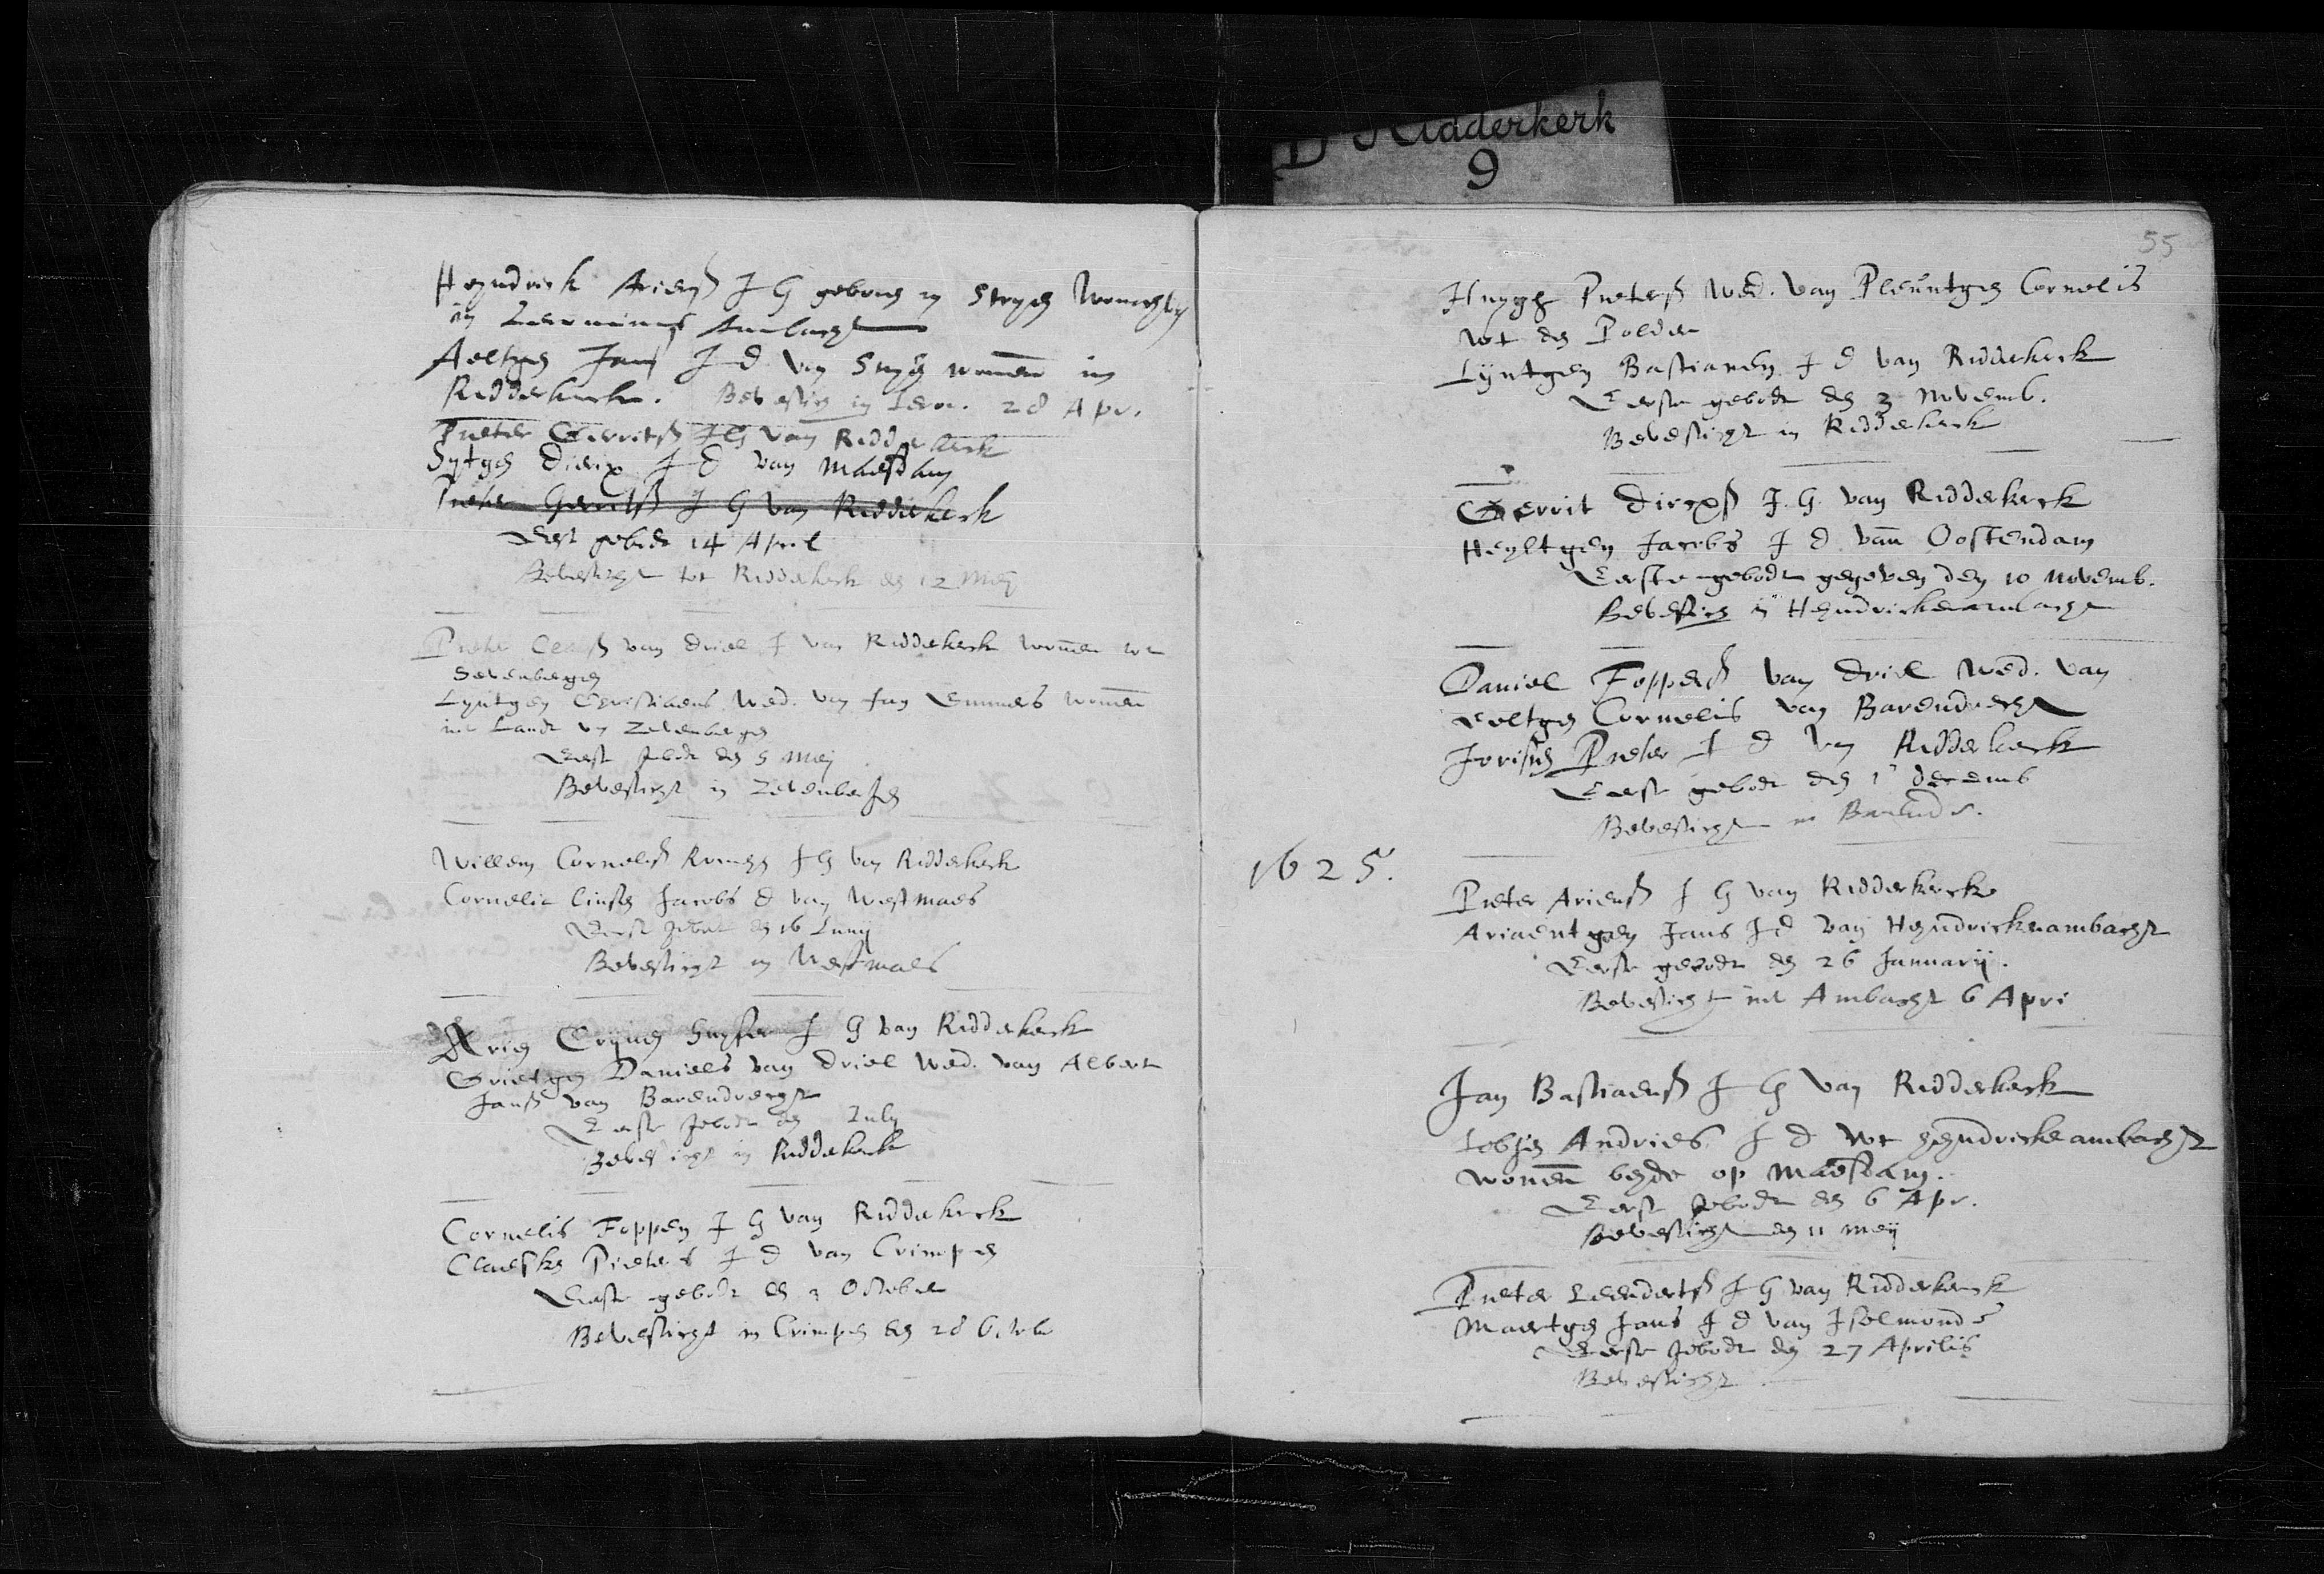 D Ridderkerk
9
Heyndrick Ariens J G geboren in Stryen
in
Aeltgen Jans J d van wonen in
Ridderkerke. Bevestig in 28 Apr.
Pieter Gerrits J G van Ridderkerk
Sytgen Dierix J d van Maesdam
Pieter Gerrits J G van Ridderkerk
Eerst gebode 14 April
Bevesticht tot Ridderkerk den 12 Meij
Pieter Cleas van Driel J van Ridderkerk wonen tot
Sevenbergen
Lyntgen Christiaens Wed. van Jan Emmers wonen
int Landt van Zevenbergen
Eerst gebodt den 5 Meij
Bevesticht in Zevenbergen
Willem Cornelis J G van Ridderkerk
Cornelia Jacobs d van Westmaes
Eerst gebodt den 16 Junij
Bevesticht in Westmaes
Arien Crijnen J G van Ridderkerk
Grietgen Daniels van Driel Wed. van Albert
Jans van Barendrecht
Eerste gebodt den July
Bevesticht in Ridderkerk
Cornelis Foppen J G van Ridderkerk
Claeske Pieters J d van Crimpen
Eerste gebodt den 3 October
Bevesticht in Crimpen den 28 Octob
55
Huygh Pieters Wed. van Pleuntgen Cornelis
tot den Polder
Lijntgen Bastiaens J d van Ridderkerk
Eerste gebodt den 3 Novemb.
Bevesticht in Ridderkerk
Gerrit Dircxs J. G. van Ridderkerck
Heyltgen Jacobs J d van Oostendam
Eerste gebodt gegeven den 10 Novemb.
Bevestich in Heyndrickenambacht
Daniel Foppens van Driel Wed. van
Eeltgen Cornelis van Barendrecht
Jorisgen Pieter J d van Ridderkerk
Eerste gebodt den 1 Decemb
Bevesticht in Barend.
1625.
Pieter Ariens J G van Ridderkercke
Ariaentgen Jans J d van Heyndricknambacht
Eerste gebodt den 26 Januarij.
Bevesticht int Ambacht 6 Apri
Jan Bastiaens J G van Ridderkerk
Andries J d tot Heyndrickeambacht
wonen beyde op Maesdam.
Eerst gebodt den 6 Apr.
Bevesticht den 11 Meij
Pieter Leenderts J G van Ridderkerck
Maertgen Jans J d van Iselmonde
Eerste gebodt den 27 Aprilis
Bevesticht